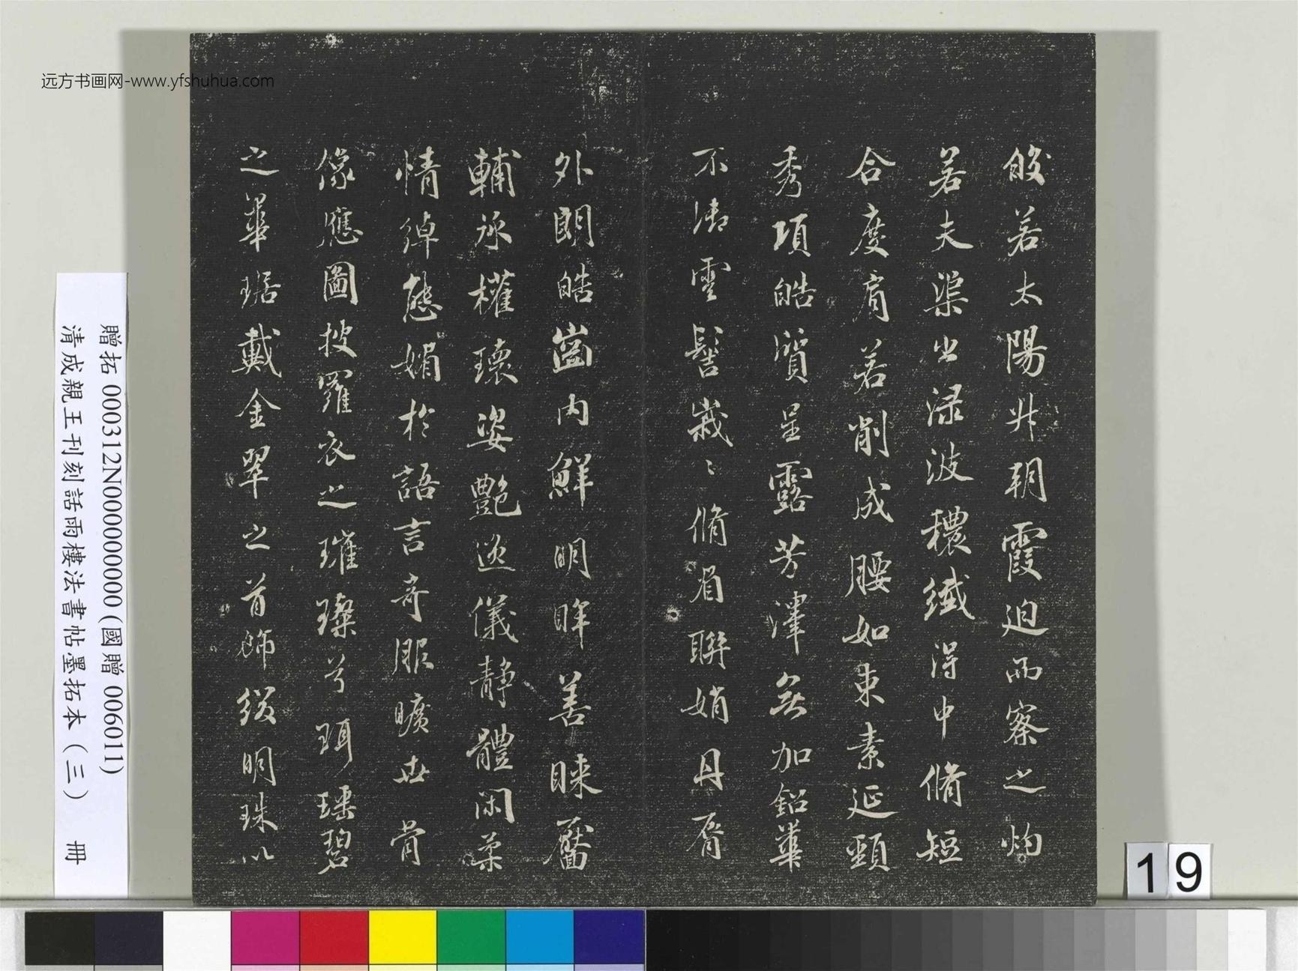 远方书画网-www.yfshuhua.com
皎若太陽升朝霞迫而察之灼
若夫渠出渌波穠纖得中脩短
合度肩若削成腰如束素延頸
秀項皓質呈露芳澤無加鉛華
不御雲髻峩〻脩眉聯娟丹脣
外朗皓齒內鮮明眸善睞靨
輔承權瓌姿艷逸儀靜體閑柔
情綽態媚於語言奇服曠世骨
像應圖披羅衣之璀璨兮珥瑤碧
之華琚戴金翠之首飾綴明珠以
贈拓 000312N000000000 (國贈 006011)
清成親王刊刻話雨樓法書帖墨拓本(三) 冊
19